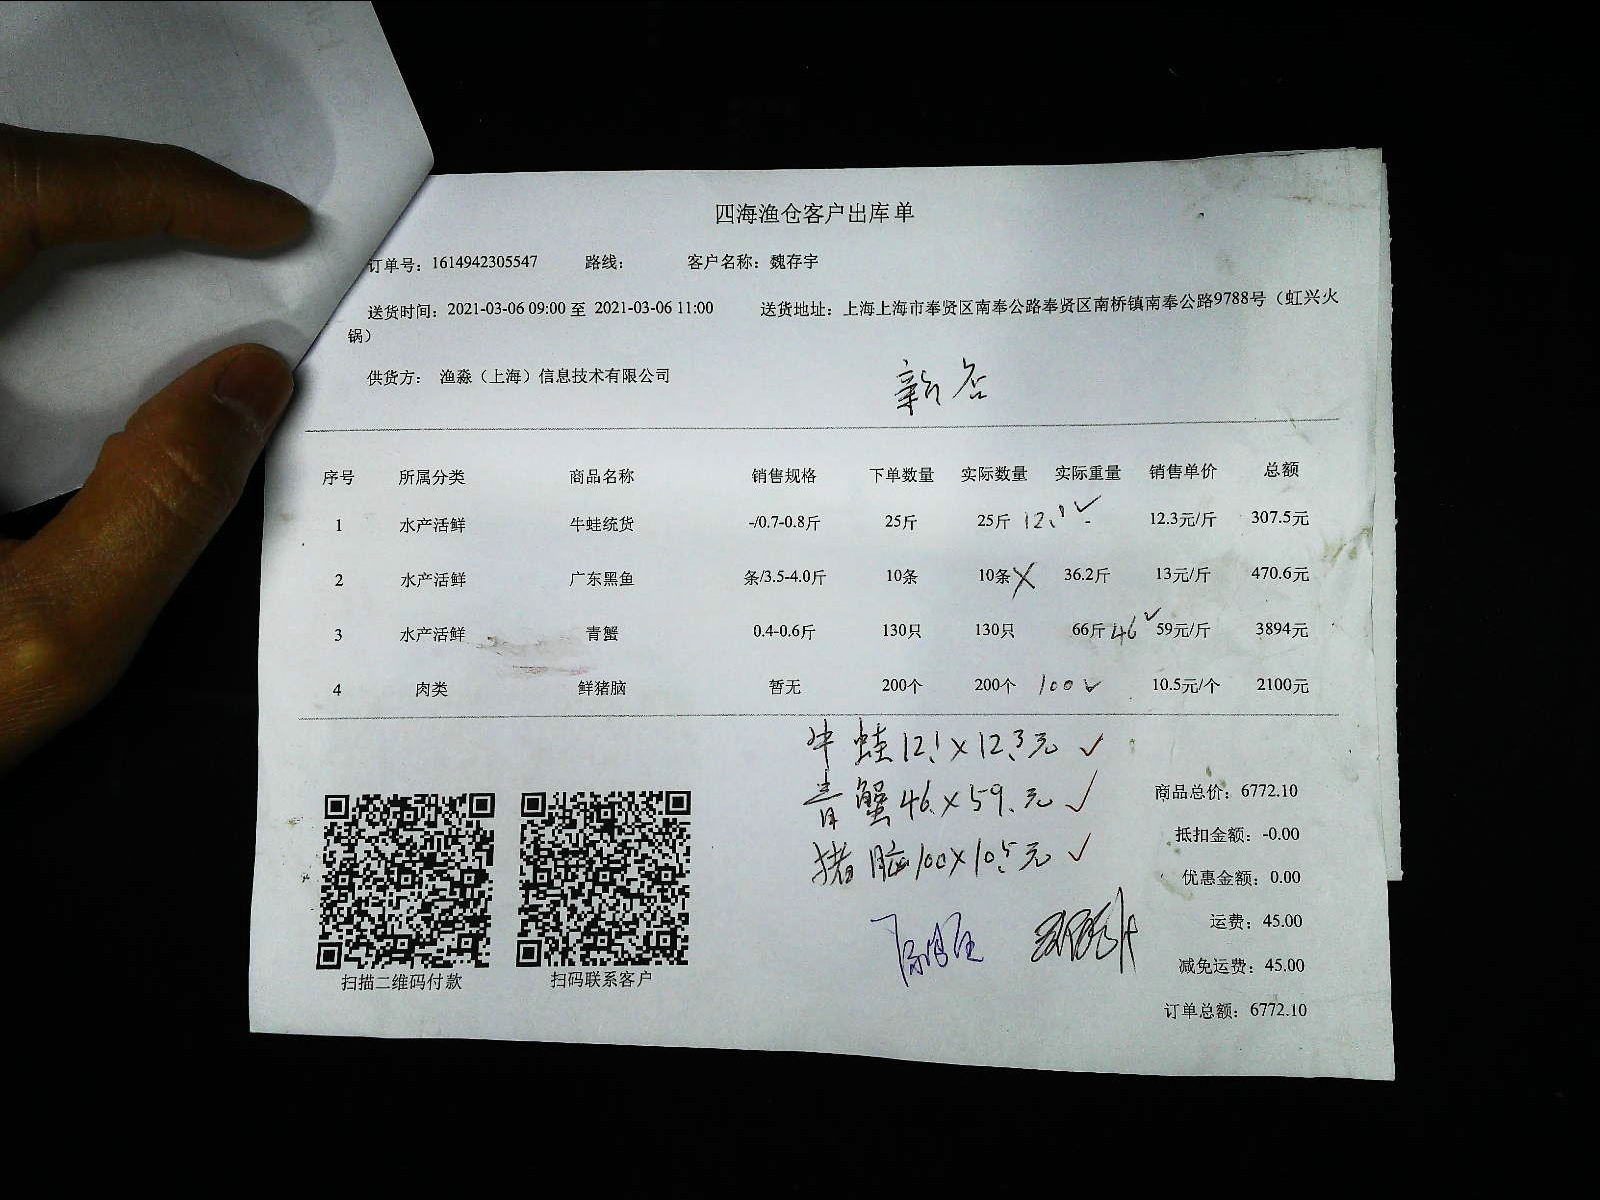 四海渔仓客户出库单
订单号：1614942305547 路线： 客户名称：魏存宇
送货时间：2021-03-06 09:00 至 2021-03-06 11:00 送货地址：上海上海市奉贤区南奉公路奉贤区南桥镇南奉公路9788号（虹兴火
锅）
供货方： 渔淼（上海）信息技术有限公司
序号 所属分类 商品名称 销售规格 下单数量 实际数量 实际重量 销售单价 总额
1 水产活鲜 牛蛙统货 -/0.7-0.8斤 25斤 25斤 12.1✓ - 12.3元/斤 307.5元
2 水产活鲜 广东黑鱼 条/3.5-4.0斤 10条 10条 × 36.2斤 13元/斤 470.6元
3 水产活鲜 青蟹 0.4-0.6斤 130只 130只 66斤 46✓ 59元/斤 3894元
4 肉类 鲜猪脑 暂无 200个 200个 100✓ 10.5元/个 2100元
牛蛙12.1×12.3元 ✓
青蟹46.×59.元 ✓
猪脑100×10.5元 ✓
商品总价：6772.10
抵扣金额：-0.00
优惠金额：0.00
运费：45.00
减免运费：45.00
订单总额：6772.10
扫描二维码付款 扫码联系客户